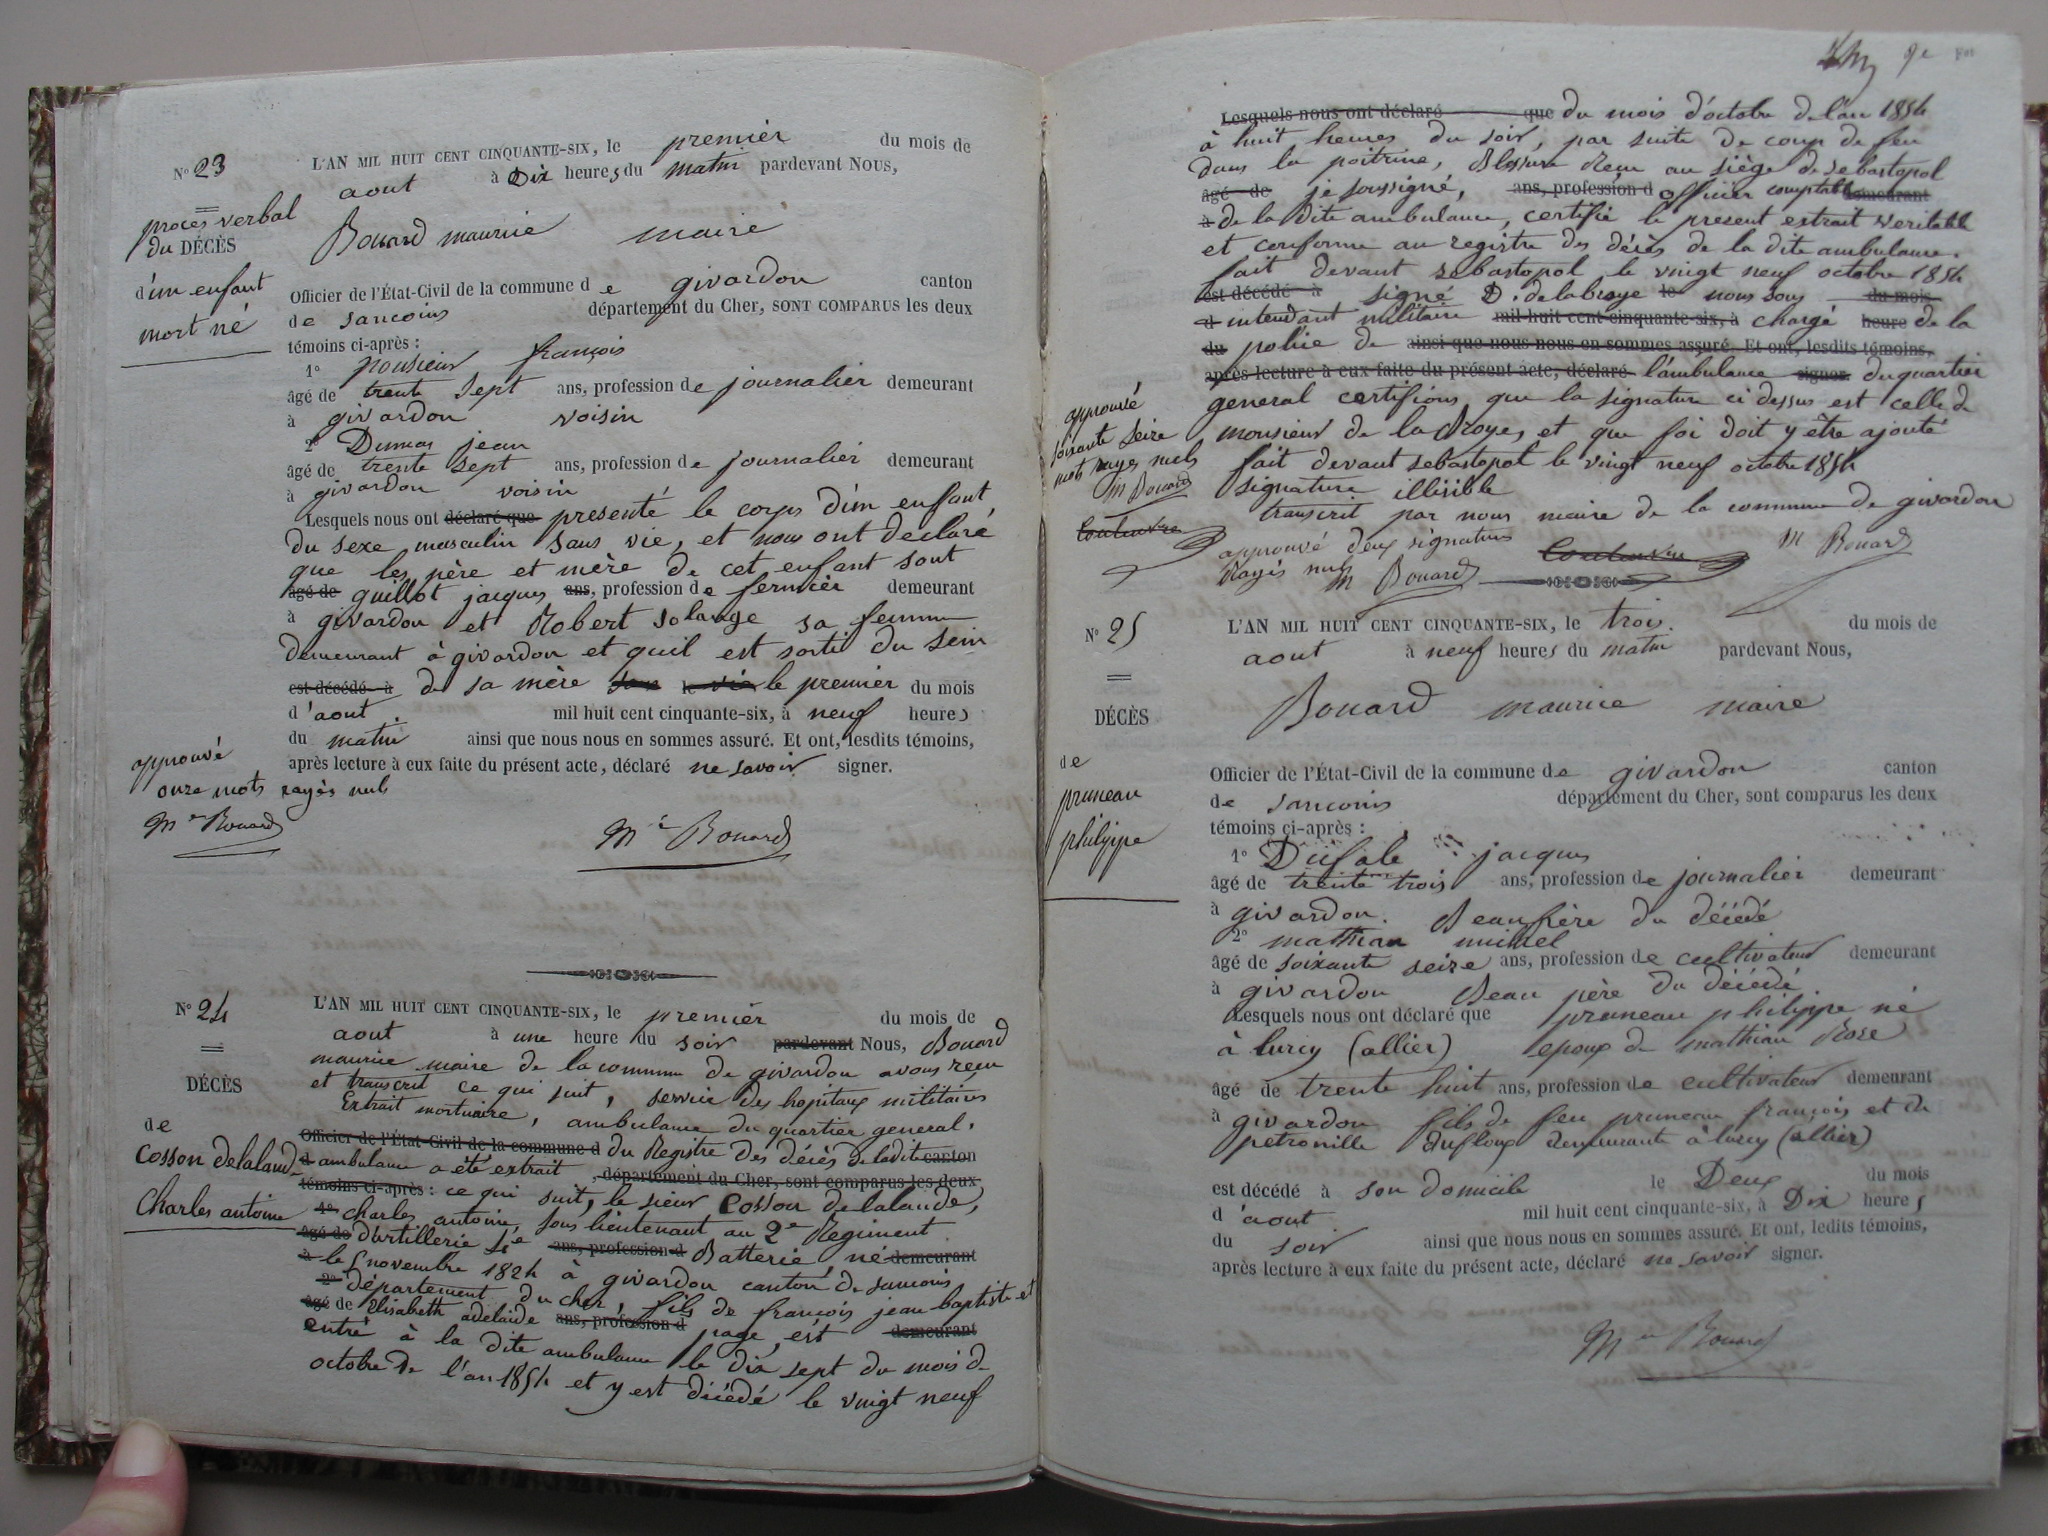 N° 23
procès verbal
du DÉCÈS
d'un enfant
mort né
L'AN MIL HUIT CENT CINQUANTE-SIX, le premier du mois de
aout à Dix heures du matin pardevant NOUS,
Bouard maurice maire
Officier de l'État-Civil de la commune de givardon canton
de sancoins département du Cher, SONT COMPARUS les deux
témoins ci-après :
1° françois
âgé de trente sept ans, profession de journalier demeurant
à givardon voisin
2° Dumas jean
âgé de trente sept ans, profession de journalier demeurant
à givardon voisin
Lesquels nous ont déclaré que presenté le corps d'un enfant
du sexe masculin sans vie, et nous ont declaré
que les père et mère de cet enfant sont
âgé de guillot jacques ans, profession de fermier demeurant
à givardon et Robert solange sa femme
demeurant à givardon et quil est sortie du sein
est décédé à de sa mère sans le vie le premier du mois
d'aout mil huit cent cinquante-six, à neuf heures
du matin ainsi que nous nous en sommes assuré. Et ont, lesdits témoins,
après lecture à eux faite du présent acte, déclaré ne savoir signer.
approuvé
onze mots rayés nuls
Mce Bouard
Mce Bouard
N° 24
DÉCÈS
de
Cosson delalande
Charles antoine
L'AN MIL HUIT CENT CINQUANTE-SIX, le premier du mois de
aout à une heure du soir pardevant Nous, Bouard
maurice maire de la commune de givardon avons recu
et transcrit ce qui suit, service des hopitaux militaires
Extrait mortuaire, ambulance du quartier general.
Officier de l'État-Civil de la commune d du Registre des décès de ladite canton
d ambulance a été extrait , département du Cher, sont comparus les deux
témoins ci-après : ce qui suit, le sieur Cosson delalande,
1° charles antoine, sous lieutenant au 2e Regiment
âgé de D'artillerie 4e ans, profession d Batterie, né demeurant
à le 5 novembre 1824 à givardon canton de sancoins
2° département du cher, fils de françois jean baptiste et
âgé de Elisabeth adelaide ans, profession d page, est demeurant
entré à la dite ambulance le dix sept du mois d
octobre de l'an 1854 et y est décédé le vingt neuf
9e
Lesquels nous ont déclaré que du mois d'octobre de l'an 1854
à huit heures du soir, par suite de coup de feu
dans la poitrine, Blessure Recu au siège de sebastopol
âgé de je soussigné, ans, profession d officier comptable demeurant
à de la dite ambulance, certifie le present extrait veritable
et conforme au registre des décès de la dite ambulance.
fait devant sebastopol le vingt neuf octobre 1854
est décédé à signé D. delabroye le nous sous du mois
d intendant militaire mil huit cent cinquante-six, à chargé heure de la
du police de ainsi que nous nous en sommes assuré. Et ont, lesdits témoins,
après lecture à eux faite du présent acte, déclaré l'ambulance signer. du quartier
general certifions que la signature ci dessus est celle de
monsieur de la Broye, et que foi doit y être ajouté
fait devant sebastopol le vingt neuf octobre 1854
signature illisible
transcrit par nous maire de la commune de givardon
approuvé
soixante seize
mots rayés nuls
M Bouard
approuvé deux signatures
Rayés nuls
M Bouard
M Bouard
N° 25
DÉCÈS
de
pruneau
philippe
L'AN MIL HUIT CENT CINQUANTE-SIX, le trois du mois de
aout à neuf heures du matin pardevant Nous,
Bouard maurice maire
Officier de l'État-Civil de la commune de givardon canton
de sancoins département du Cher, sont comparus les deux
témoins ci-après :
1° jacques
âgé de trente trois ans, profession de journalier demeurant
à givardon. Beau frère du décédé
2° mathiau
âgé de soixante seize ans, profession de cultivateur demeurant
à givardon Beau père du décédé.
Lesquels nous ont déclaré que pruneau philippe né
à lurcy (allier) epoux de mathiau Rose
âgé de trente huit ans, profession de cultivateur demeurant
à givardon fils de feu pruneau françois et de
petronille Dufloux demeurante à lurcy (allier)
est décédé à son domicile le Deux du mois
d'aout mil huit cent cinquante-six, à Dix heures
du soir ainsi que nous nous en sommes assuré. Et ont, ledits témoins,
après lecture à eux faite du présent acte, déclaré ne savoir signer.
Mce Bouard